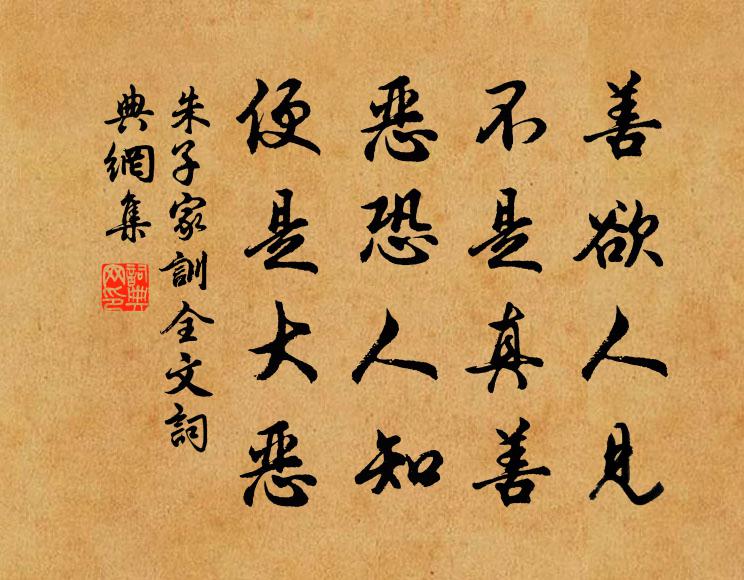 善欲人見
不是真善
惡恐人知
便是大惡
朱子家訓全文詞
典網集
詞典
网印